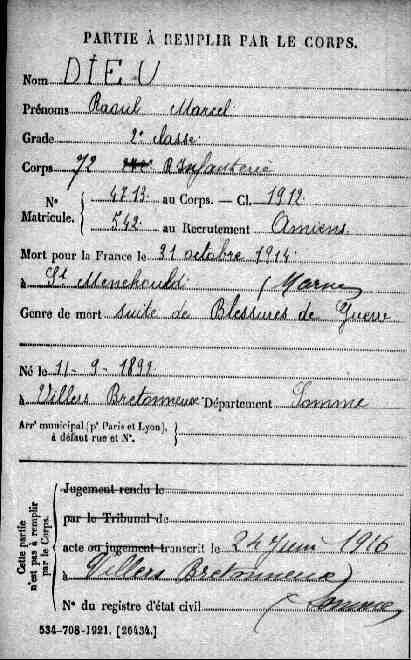 PARTIE À REMPLIR PAR LE CORPS.
Nom DIEU
Prénoms Raoul Marcel
Grade 2e classe
Corps 72 R Infanterie
N° 4713 au Corps. — Cl. 1912
Matricule. 542 au Recrutement Amiens
Mort pour la France le 31 octobre 1914
à St Menehould (Marne)
Genre de mort suite de Blessures de Guerre
Né le 11-9-1892
à Villers Bretonneux Département Somme
Arrt municipal (pr Paris et Lyon),
à défaut rue et N°.
Cette partie
n'est pas à remplir
par le Corps.
Jugement rendu le
par le Tribunal de
acte ou jugement transcrit le 24 Juin 1916
à Villers Bretonneux
N° du registre d'état civil (Somme)
534-708-1921. [26434.]